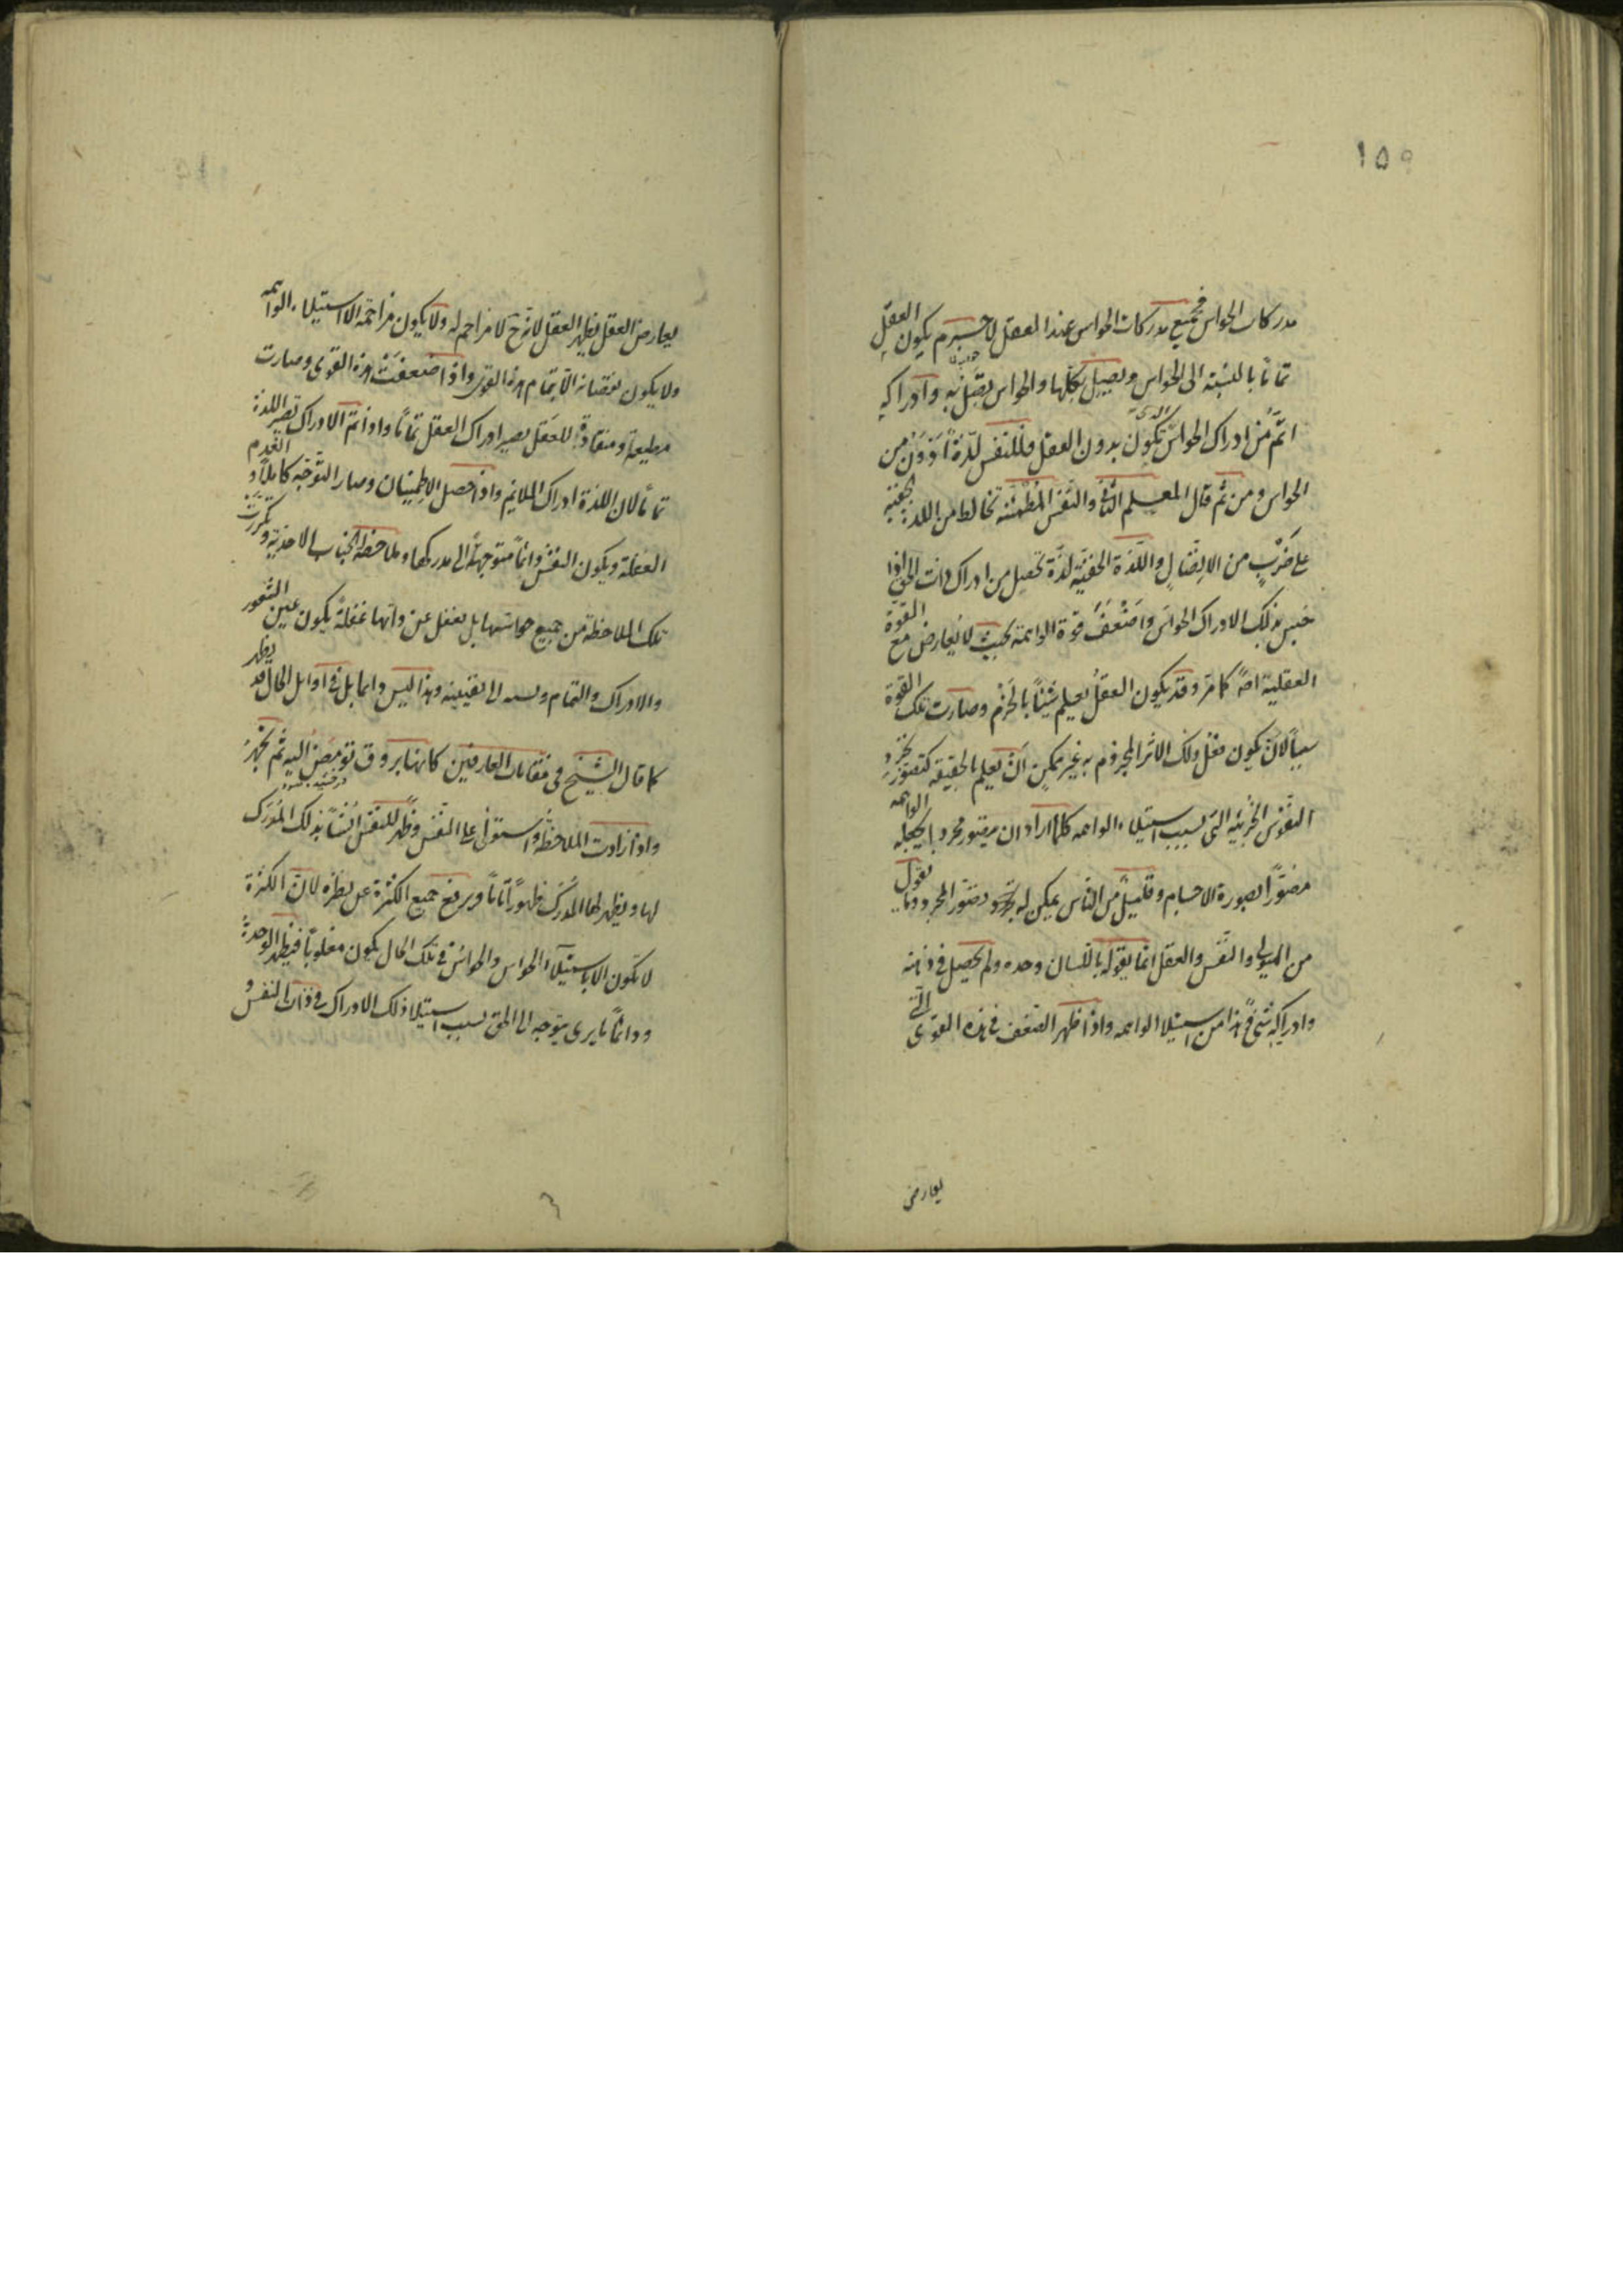 ١٥٩
مدركات الحواس فجميع مدركات الحواس عند العقل لا جرم يكون العقل
تماما بالنسبة الى الحواس ويصل بكلها والحواس يتصل به وادراكه
اتم من ادراك الحواس الذى تكون بدون العقل فللنفس لذة اَدْوَن من
الحواس ومن ثم قال المعلم الثانى والنفس المطمئنة تخالط من اللذة الخفية
على ضربٍ من الاتصال واللذة الخفية لذة تحصل من ادراك ذات الحق اذا
حبس بذلك الادراك الحواس واضعف قوة الواهمة بحيث لا يعارض مع القوة
العقلية اصلا كما مر وقد يكون العقل يعلم شيئاً بالجزم وصارت تلك القوة
سبباً لان يكون فعل ذلك الاثر المجزوم به غير ممكن ان يعلم بالحقيقة كتصور تجرد
النفوس الجزئية التى بسبب استيلاء الواهمه كلما اراد ان يتصور مجردا يجعله الواهمه
مصوّرا بصورة الاجسام وقليل من الناس يمكن له تجرد وتصور المجرد وما يقول
من الهيولى والنفس والعقل انما يقوله باللسان وحده ولم يحصل فى ذهنه
وادراكه شئ فهذا من استيلا الواهمه واذا ظهر الضعف فى هذه القوى التى
يعارض
يعارض العقل يظهر العقل لانه ح لا مزاحم له ولا يكون مزاحمة الا استيلاء الواهمه
ولا يكون نقصانه الا بتمام هذه القوى واذا ضعفت هذه القوى وصارت
مطيعة ومنقادة للعقل يصير ادراك العقل تماماً واذا تم الادراك تصير اللذة
تماماً لان اللذة ادراك الملايم واذا حصل الاطمينان وصار التوجه كاملاً وانعدم
الغفلة ويكون النفس دائماً متوجهاً الى مدركها وملاحظة الجناب الاحدية وتكررت
تلك الملاحظة من جميع حواسها بل يغفل عن ذاتها غفلةً يكون عين الشعور
والادراك والتمام ونسبه الى يقينية وهذا ليس دائما بل فى اوايل الحال قد يظهر
كما قال الشيخ فى مقامات العارفين كانها بروق تومض اليه ثم تخمد
واذا زادت الملاحظة واستولى على النفس وظهر للنفس انساً بذلك المدرك
لها ويظهر لها المدرك ظهوراً تاماً ويرتفع جميع الكثرة عن نظره لان الكثرة
لا تكون الا باستيلاء الحواس والحواس فى تلك الحال يكون مغلوباً فيظهر الوحدة
ودائماً ما يرى يتوجه الى الحق بسبب استيلا ذلك الادراك فى ذات النفس و